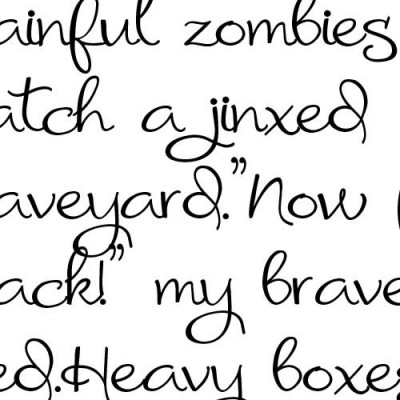 ainful zombies
atch a jinxed
aveyard.”Now
ack!” my brave
ed.Heavy boxes